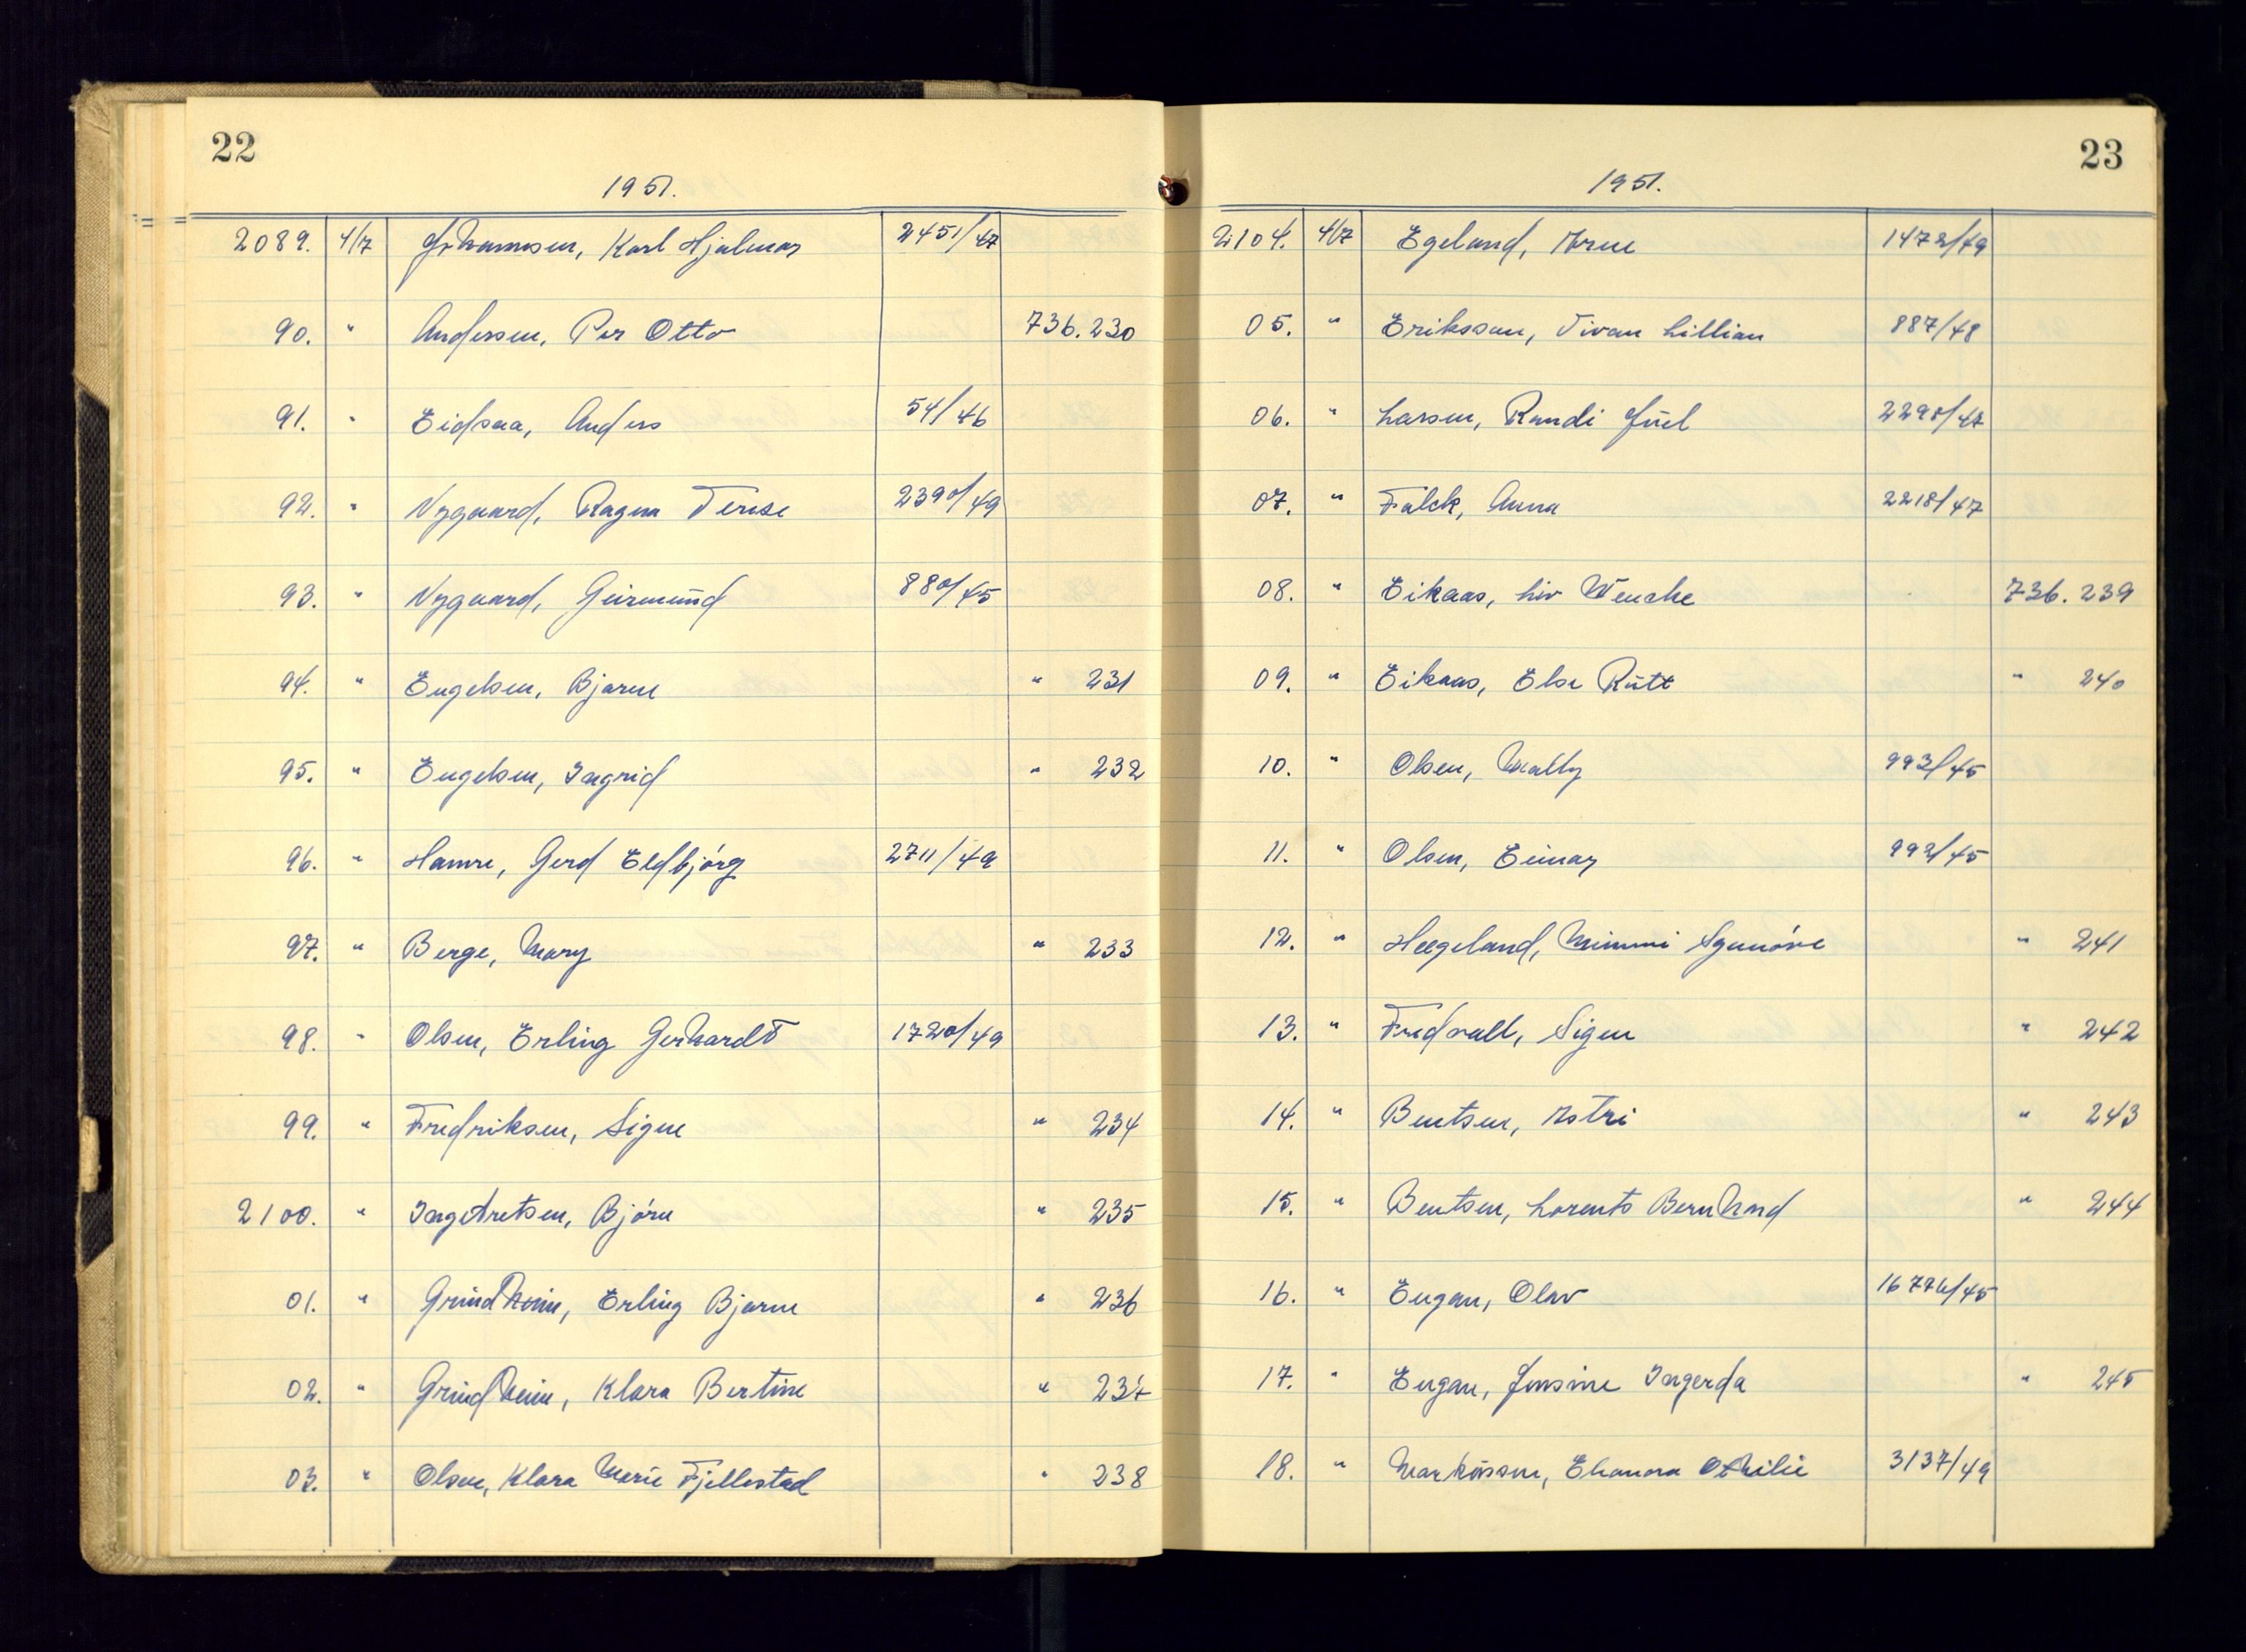 22
1951.
2089. 4/7 Johannesen, Karl Hjalmar 2451/47
90. " Andersen, Per Otto 736.230
91. " Eidsaa, Anders 54/46
92. " Nygaard, Ragna Terese 2390/49
93. " Nygaard, Geirmund 880/45
94. " Engelsen, Bjarne " 231
95. " Engelsen, Ingrid " 232
96. " Hamre, Gerd Eldbjørg 2711/49
97. " Berge, Mary " 233
98. " Olsen, Erling Gerhardt 1720/49
99. " Fredriksen, Signe " 234
2100. " Ingebretsen, Bjørn " 235
01. " Grindheim, Erling Bjarne " 236
02. " Grindheim, Klara Bertine " 237
03. " Olsen, Klara Marie Fjellestad " 238
23
1951.
2104. 4/7 Egeland, Arne 1472/49
05. " Eriksson, Vivan Lillian 887/48
06. " Larsen, Randi Juel 2290/47
07. " Falck, Anna 2218/47
08. " Eikaas, Liv Wenche 736.239
09. " Eikaas, Else Rutt " 240
10. " Olsen, Mally 993/45
11. " Olsen, Einar 992/45
12. " Hægeland, Mimmi Synnøve " 241
13. " Fredvall, Signe " 242
14. " Bentsen, Astri " 243
15. " Bentsen, Lorents Bernhard " 244
16. " Engan, Olav /45
17. " Engan, Jensine Ingerda " 245
18. " Markussen, Eleanora Othilie 3137/49